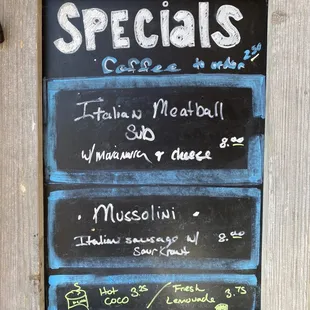 SPEcialS
Coffee to order 2.50
Italian Meatball
Sub
w/ Marinara & cheese 8.00
• Mussolini •
Italian sausage w/ 8.00
Sour Kraut
Hot 3.25 / Fresh 3.75
Coco Lemonade